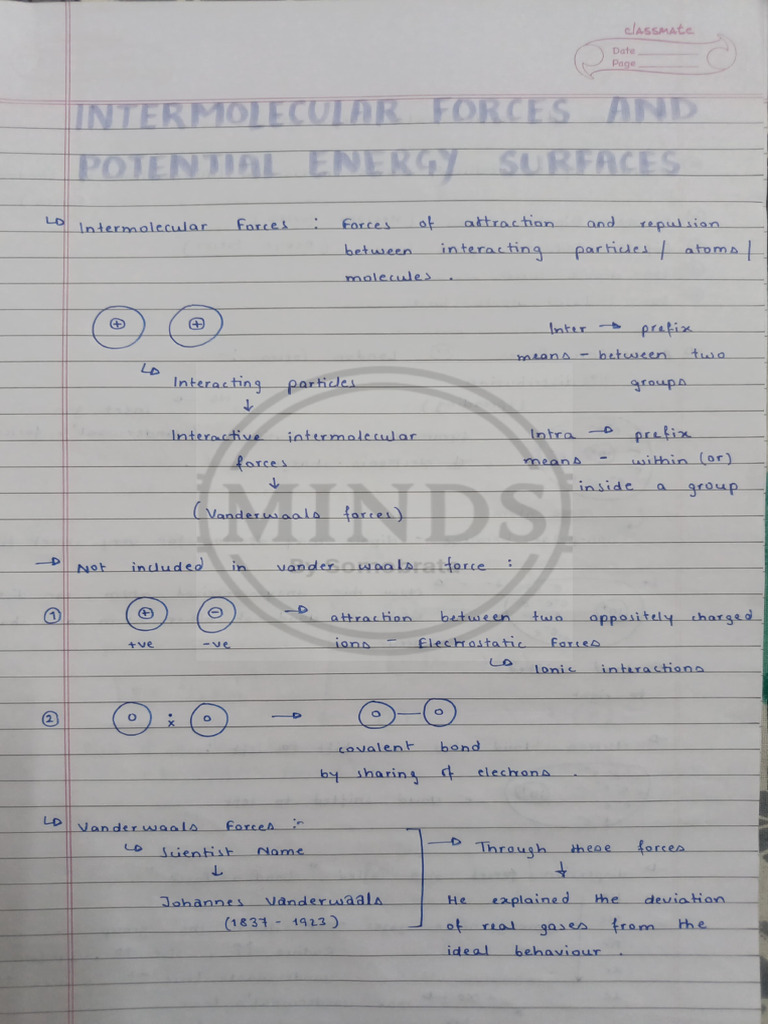 classmate
Date
Page
INTERMOLECULAR FORCES AND
POTENTIAL ENERGY SURFACES
Intermolecular Forces : Forces of attraction and repulsion
between interacting particles / atoms /
molecules .
+ +
Inter → prefix
means - between two
groups
Interacting particles
↓
Interactive intermolecular
forces
↓
(Vanderwaals forces)
Intra → prefix
means - within (or)
inside a group
MINDS
By Somobrata
→ Not included in vander waals force :
① + - → attraction between two oppositely charged
+ve -ve ions - Electrostatic Forces
Ionic interactions
② o x o → o — o
covalent bond
by sharing of electrons .
Vanderwaals Forces :-
Scientist Name
↓
Johannes Vanderwaals
(1837 - 1923)
→ Through these forces
↓
He explained the deviation
of real gases from the
ideal behaviour .